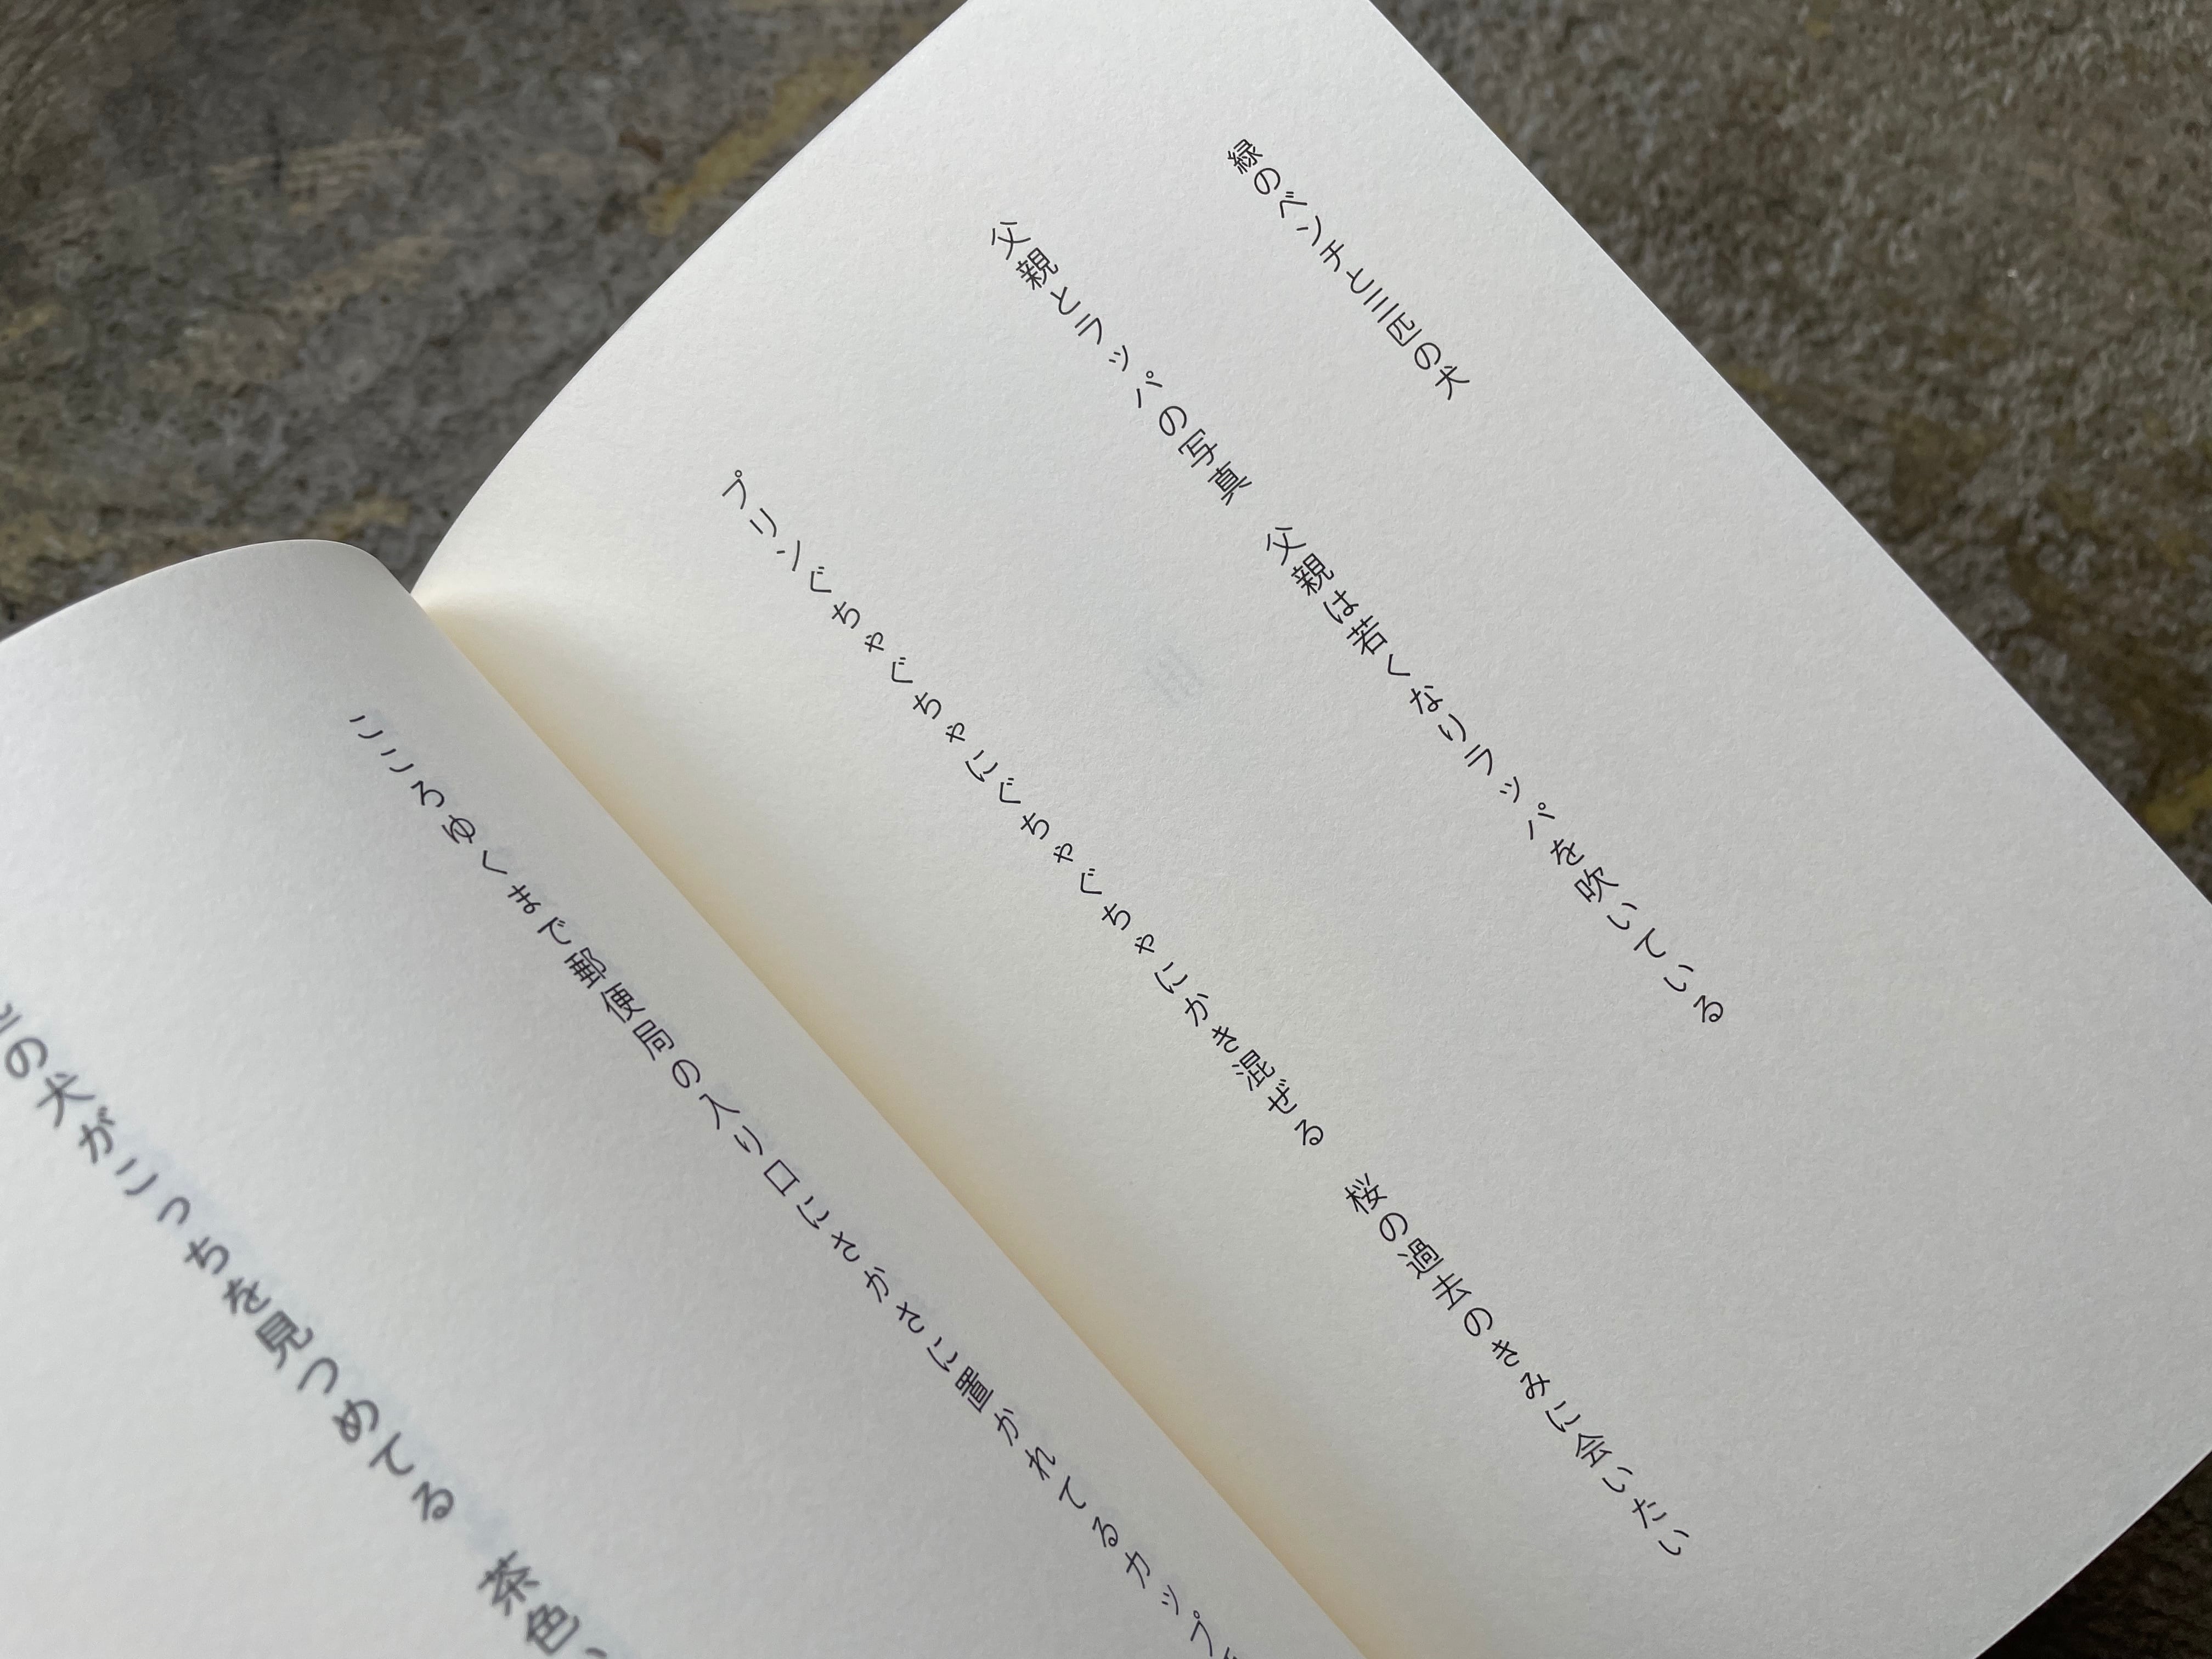 緑のベンチと三匹の犬
父親とラッパの写真　父親は若くなりラッパを吹いている
プリンぐちゃぐちゃにぐちゃぐちゃにかき混ぜる　桜の過去のきみに会いたい
こころゆくまで郵便局の入り口にさかさに置かれてるカップ
の犬がこっちを見つめてる　茶色